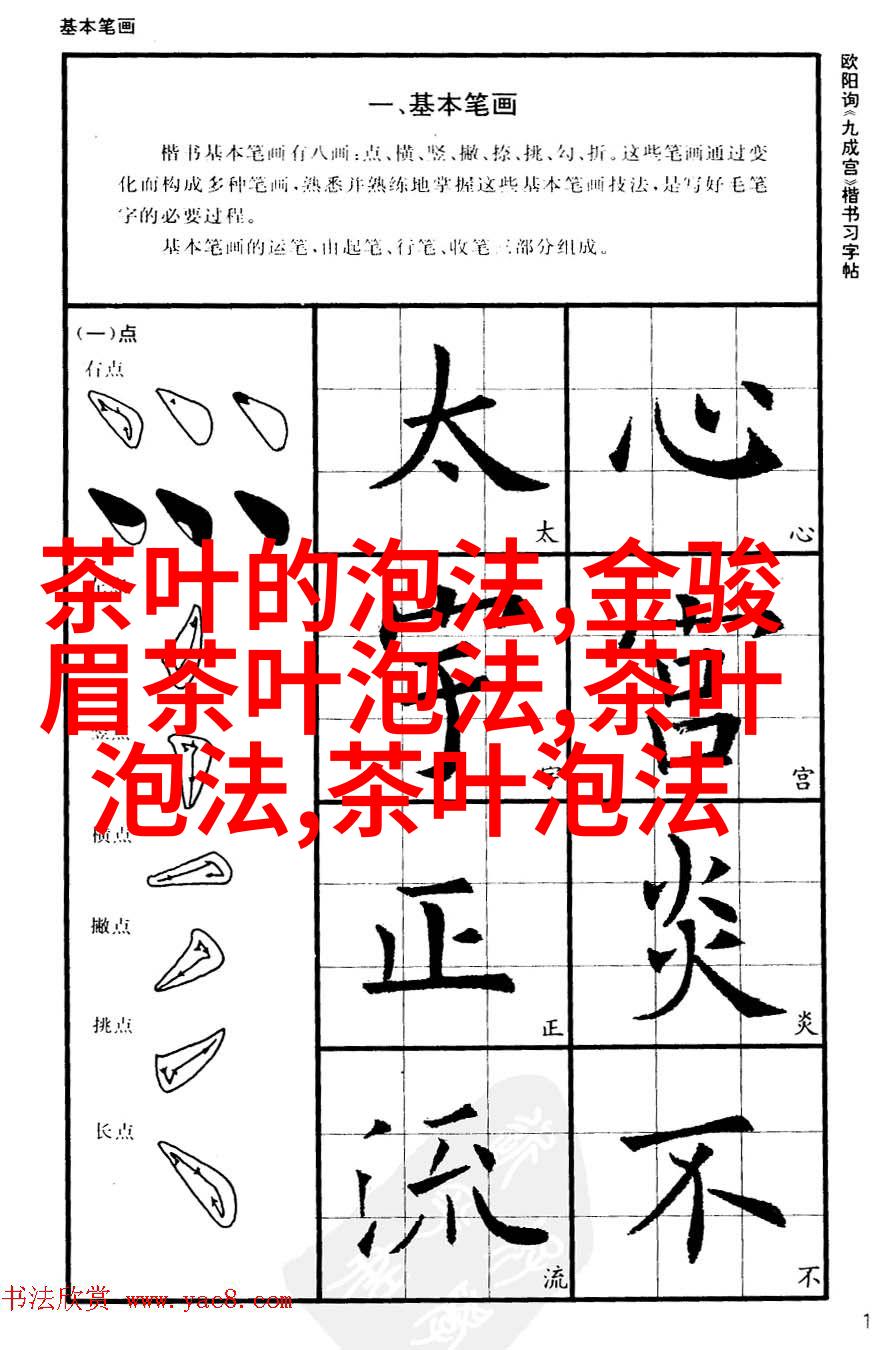 基本笔画
欧阳询《九成宫》楷书习字帖
一、基本笔画
楷书基本笔画有八画:点、横、竖、撇、捺、挑、勾、折。这些笔画通过变
化而构成多种笔画,熟悉并熟练地掌握这些基本笔画技法,是写好毛笔
字的必要过程。
基本笔画的运笔,由起笔、行笔、收笔三部分组成。
(一)点
右点
太
太
心
心
茶叶的泡法,金骏
眉茶叶泡法,茶叶
泡法,茶叶泡法
竖点
字
字
宫
宫
横点
撇点
挑点
长点
正
正
炎
炎
流
流
不
不
书法欣赏 www.yac8.com
1